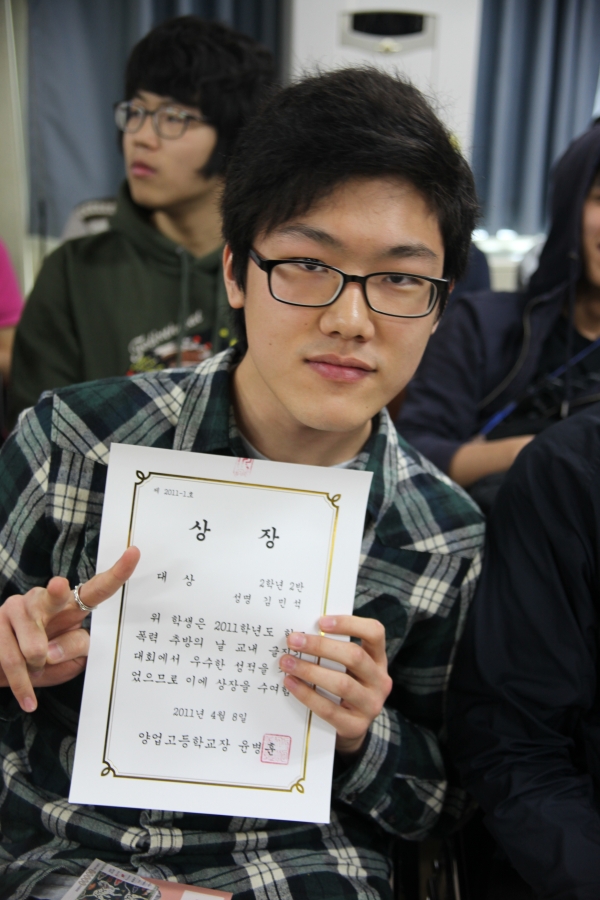 제 2011-1호
상 장
대 상 2학년 2반
성명 김민석
위 학생은 2011학년도
폭력 추방의 날 교내 글짓기
대회에서 우수한 성적을
었으므로 이에 상장을 수여합
2011년 4월 8일
양업고등학교장 윤병훈